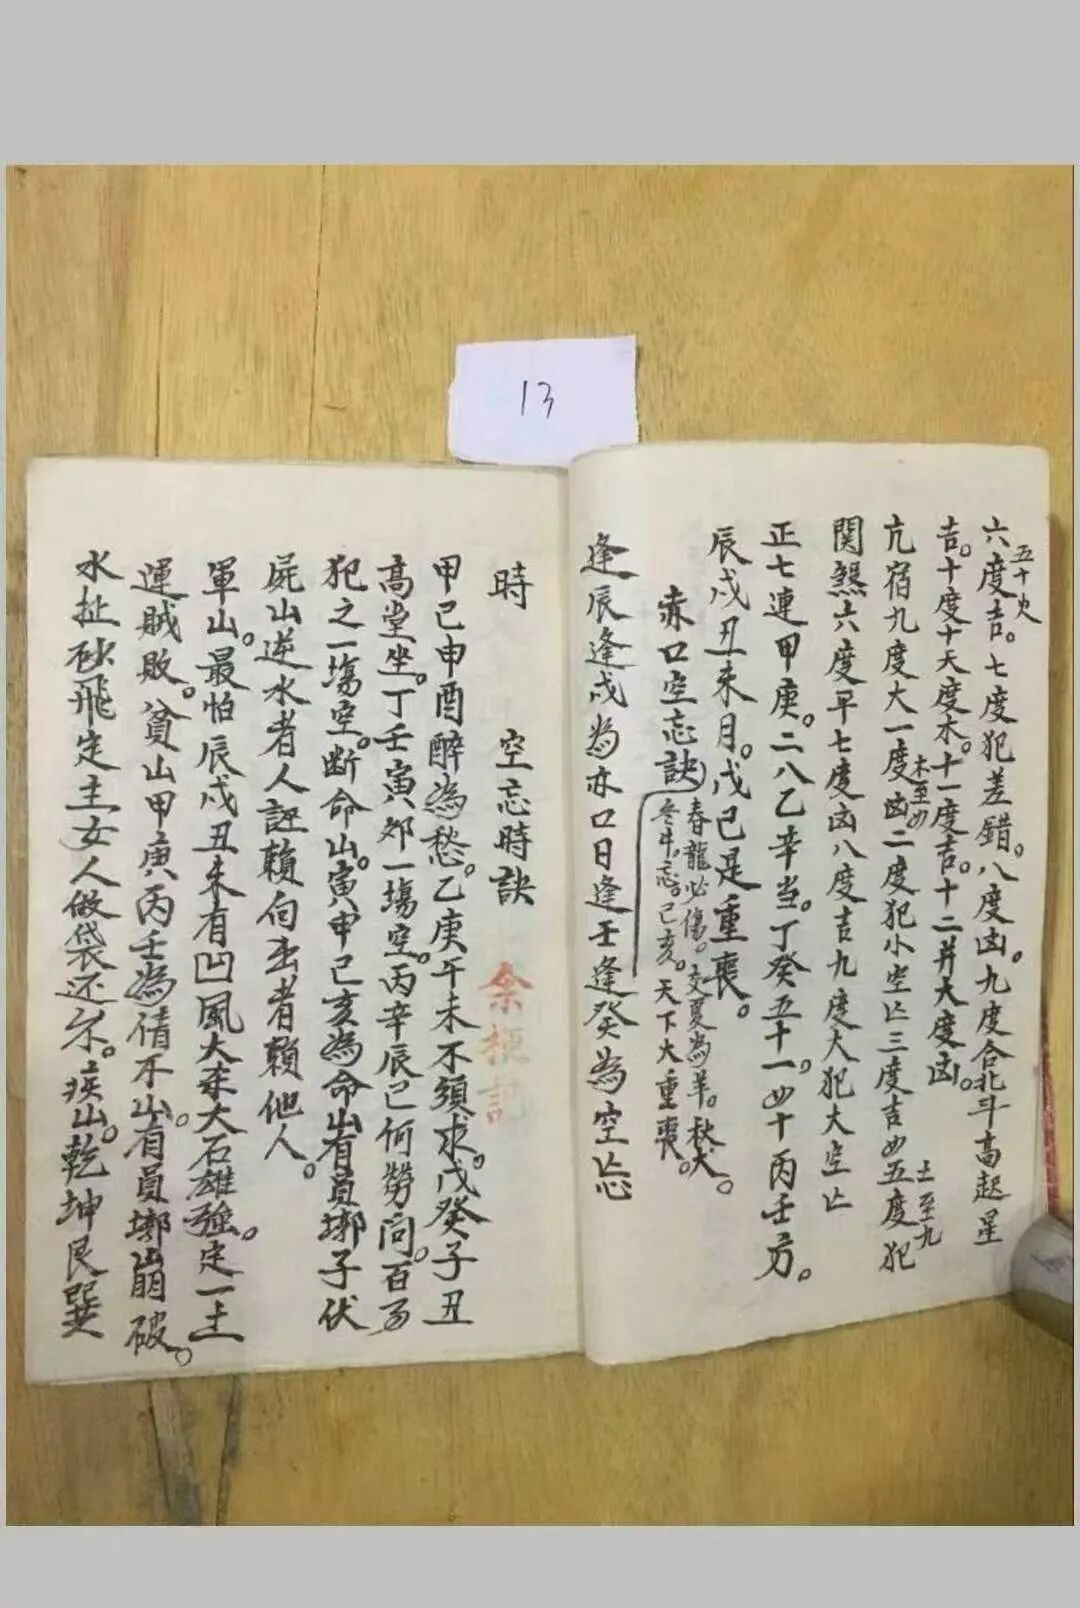 13
五十火
六度吉。七度犯差錯。八度凶。九度合北斗高起星
吉。十度十天度木。十一度吉。十二并大度凶。
木至四
土至九
亢宿九度大一度凶二度犯小空亡三度吉四五度犯
関煞六度早七度凶八度吉九度大犯大空亡
正七連甲庚。二八乙辛当。丁癸五十一。四十丙壬方。
辰戌丑未月。戊己是重喪。
赤口空忘訣
春龍必傷。交夏為羊。秋犬。
冬牛忘。己亥。天下大重喪。
逢辰逢戌為亦口日逢壬逢癸為空亡忘
時 空忘時訣
甲己申酉醉為愁。乙庚午未不須求。戊癸子丑
高堂坐。丁壬寅夘一塲空。丙辛辰巳何勞問。百
犯之一塲空。断命山。寅申巳亥為命山有員墩子伏
屍山逆水者人誆賴向出者賴他人。
軍山。最怕辰戌丑未有凹風大來大石雄強。定一主
運賊敗。貧山甲庚丙壬為倩不山。有員墩崩破。
水扯砂飛定主女人做袋还尔。疾山。乾坤艮巽